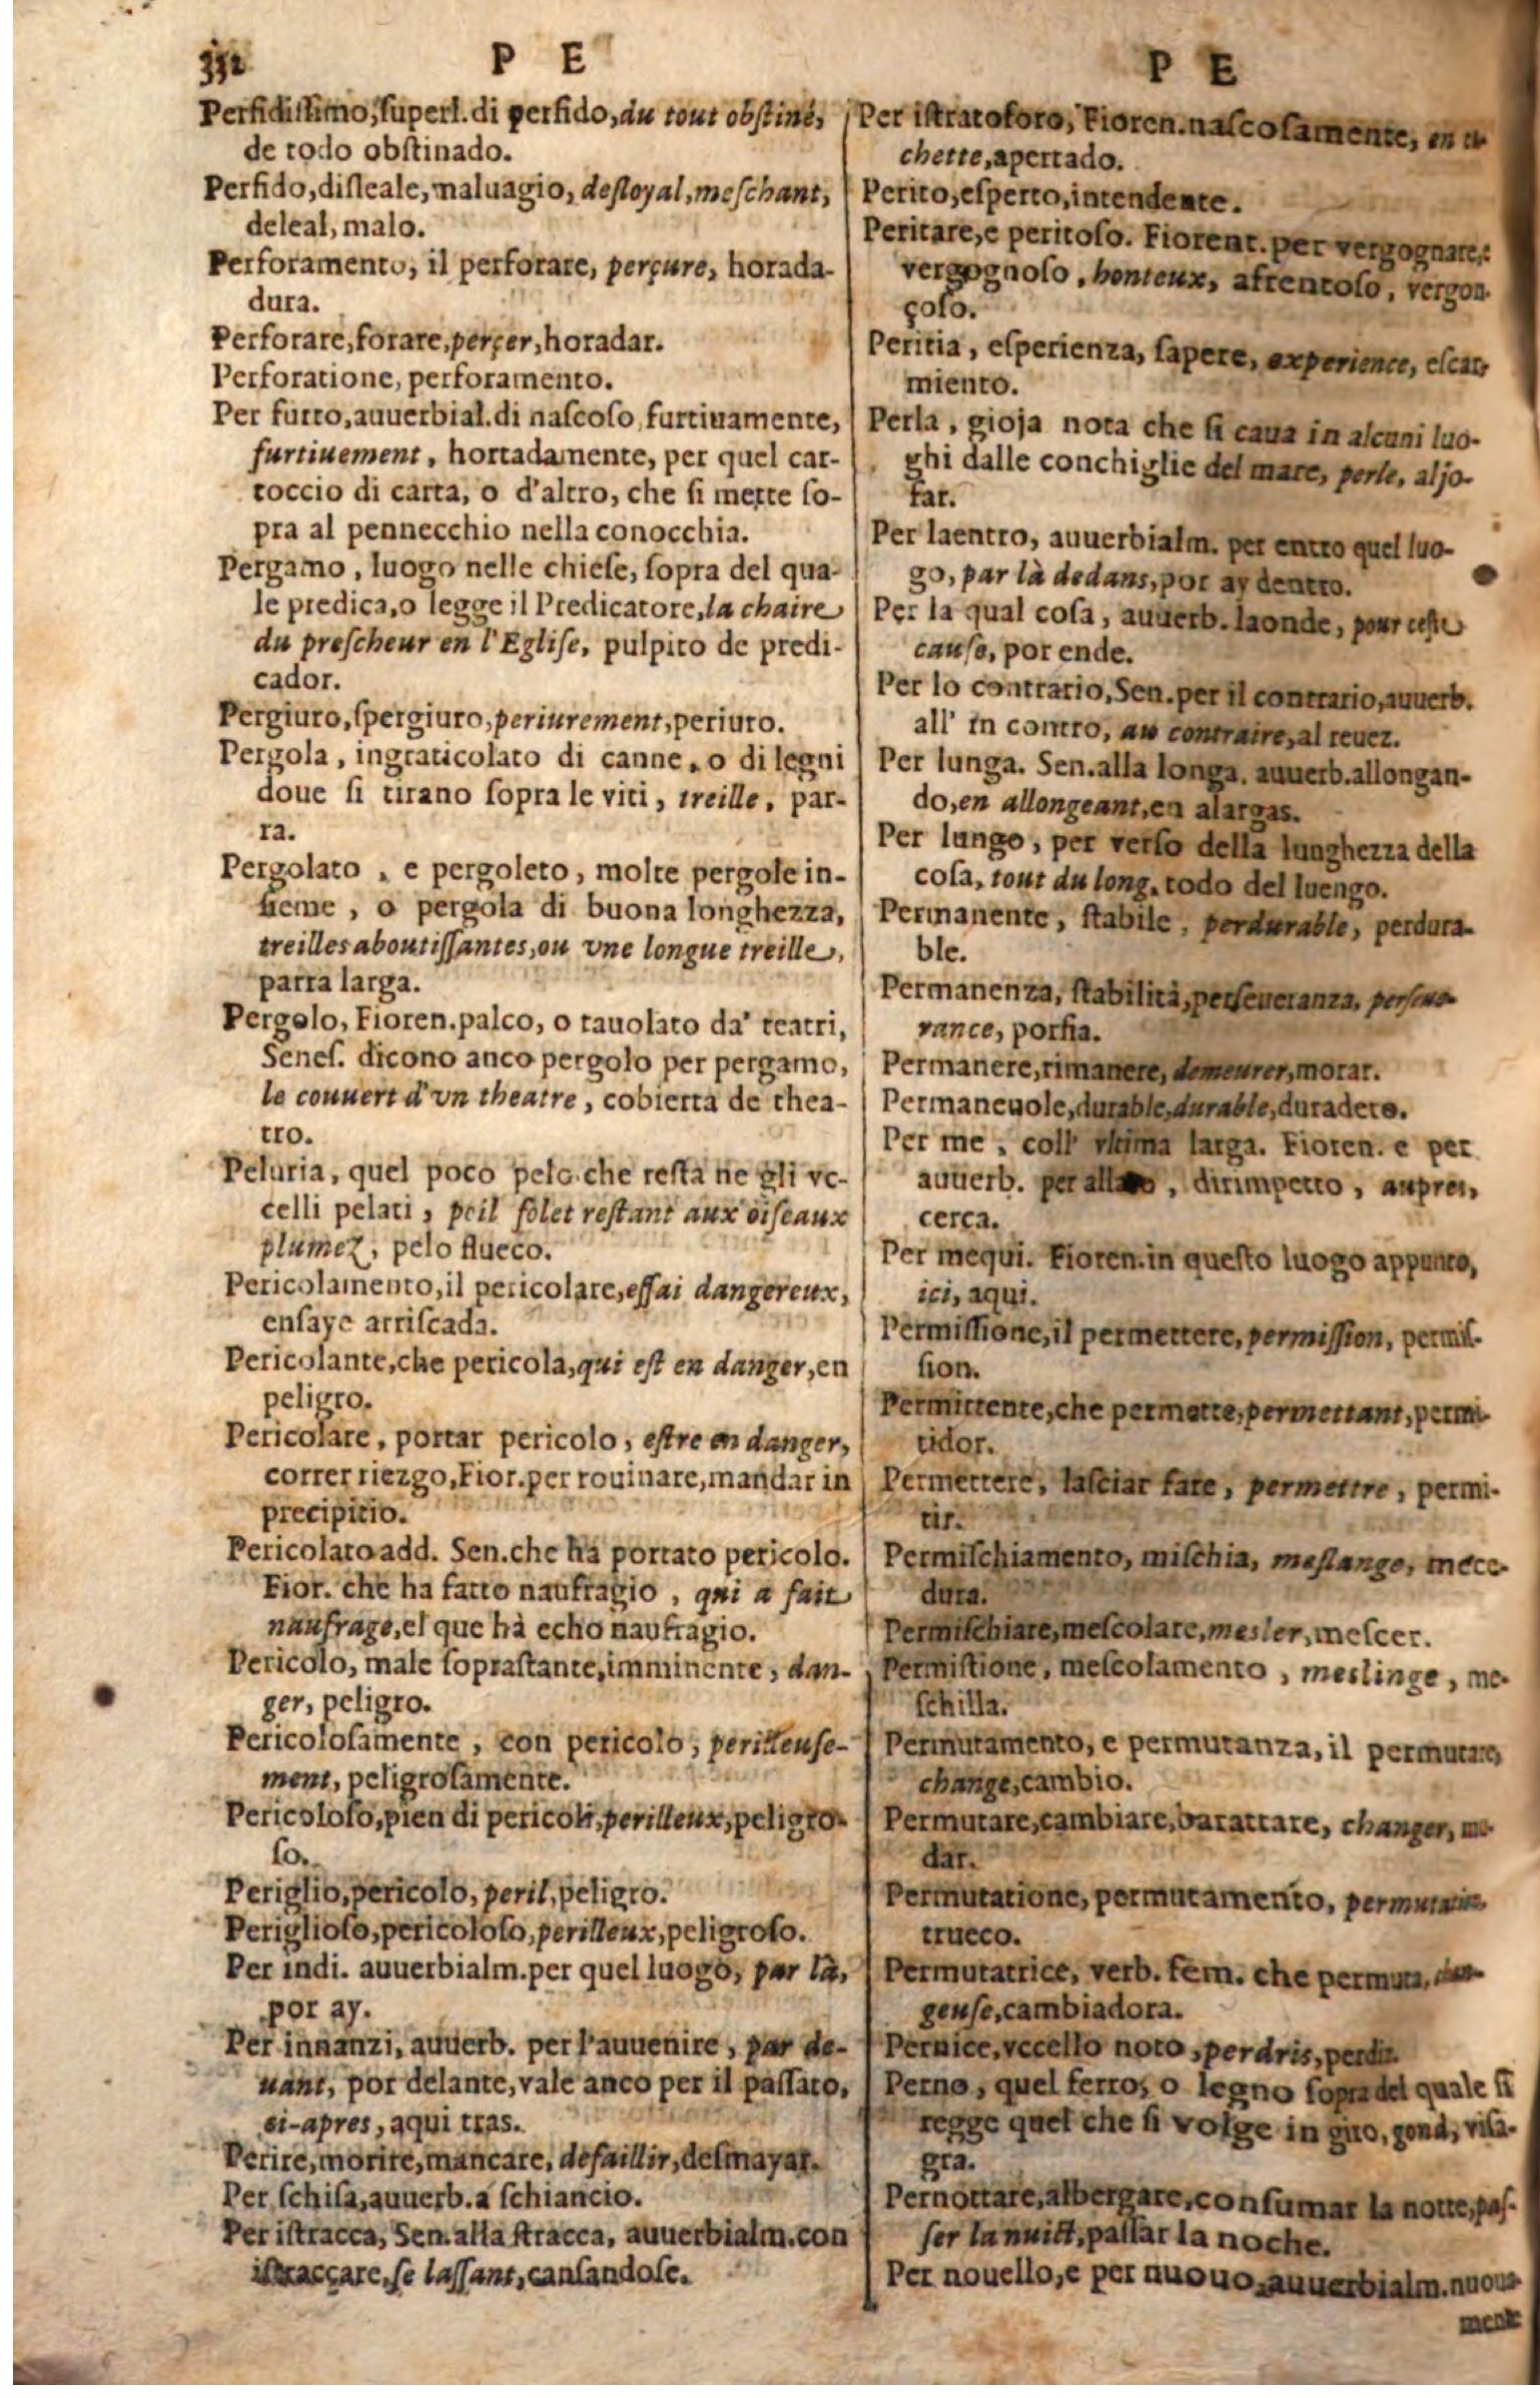 352
P E
Perfidiſſimo, ſuperl. di perfido, du tout obſtiné,
de todo obſtinado.
Perfido, diſleale, maluagio, deſloyal, meſchant,
deleal, malo.
Perforamento, il perforare, perçure, horada-
dura.
Perforare, forare, perçer, horadar.
Perforatione, perforamento.
Per furto, auuerbial. di naſcoſo, furtiuamente,
furtiuement, hortadamente, per quel car-
toccio di carta, o d'altro, che ſi mette ſo-
pra al pennecchio nella conocchia.
Pergamo, luogo nelle chieſe, ſopra del qua-
le predica, o legge il Predicatore, la chaire
du preſcheur en l'Egliſe, pulpito de predi-
cador.
Pergiuro, ſpergiuro, periurement, periuro.
Pergola, ingraticolato di canne, o di legni
doue ſi tirano ſopra le viti, treille, par-
ra.
Pergolato, e pergoleto, molte pergole in-
ſieme, o pergola di buona longhezza,
treilles aboutiſſantes, ou vne longue treille,
parra larga.
Pergolo, Fioren. palco, o tauolato da' teatri,
Seneſ. dicono anco pergolo per pergamo,
le couuert d'vn theatre, cobierta de thea-
tro.
Peluria, quel poco pelo che reſta ne gli vc-
celli pelati, poil folet reſtant aux oiſeaux
plumez, pelo flueco.
Pericolamento, il pericolare, eſſai dangereux,
enſaye arriſcada.
Pericolante, che pericola, qui eſt en danger, en
peligro.
Pericolare, portar pericolo, eſtre en danger,
correr riezgo, Fior. per rouinare, mandar in
precipitio.
Pericolato add. Sen. che ha portato pericolo.
Fior. che ha fatto naufragio, qui a fait
naufrage, el que hà echo naufragio.
Pericolo, male ſopraſtante, imminente, dan-
ger, peligro.
Pericoloſamente, con pericolo, perilleuſe-
ment, peligroſamente.
Pericoloſo, pien di pericoli, perilleux, peligro-
ſo.
Periglio, pericolo, peril, peligro.
Periglioſo, pericoloſo, perilleux, peligroſo.
Per indi. auuerbialm. per quel luogo, par là,
por ay.
Per innanzi, auuerb. per l'auuenire, par de-
uant, por delante, vale anco per il paſſato,
ci-apres, aqui tras.
Perire, morire, mancare, defaillir, deſmayar.
Per ſchiſa, auuerb. a ſchiancio.
Per iſtracca, Sen. alla ſtracca, auuerbialm. con
iſtraccare, ſe laſſant, canſandoſe.
P E
Per iſtratoforo, Fioren. naſcoſamente, en ca-
chette, apertado.
Perito, eſperto, intendente.
Peritare, e peritoſo. Fiorent. per vergognare, e
vergognoſo, honteux, afrentoſo, vergon-
çoſo.
Peritia, eſperienza, ſapere, experience, eſcar-
miento.
Perla, gioja nota che ſi caua in alcuni luo-
ghi dalle conchiglie del mare, perle, aljo-
far.
Per laentro, auuerbialm. per entro quel luo-
go, par là dedans, por ay dentro.
Per la qual coſa, auuerb. laonde, pour ceſte
cauſe, por ende.
Per lo contrario, Sen. per il contrario, auuerb.
all' in contro, au contraire, al reuez.
Per lunga. Sen. alla longa. auuerb. allongan-
do, en allongeant, en alargas.
Per lungo, per verſo della lunghezza della
coſa, tout du long, todo del luengo.
Permanente, ſtabile, perdurable, perdura-
ble.
Permanenza, ſtabilità, perſeueranza, perſeue-
rance, porfia.
Permanere, rimanere, demeurer, morar.
Permaneuole, durable, durable, duradero.
Per me, coll' vltima larga. Fioren. e per
auuerb. per allato, dirimpetto, aupres,
cerca.
Per mequi. Fioren. in queſto luogo appunto,
ici, aqui.
Permiſſione, il permettere, permiſſion, permiſ-
ſion.
Permittente, che permette, permettant, permi-
tidor.
Permettere, laſciar fare, permettre, permi-
tir.
Permiſchiamento, miſchia, meſlange, mece-
dura.
Permiſchiare, meſcolare, mesler, meſcer.
Permiſtione, meſcolamento, meslinge, me-
ſchilla.
Permutamento, e permutanza, il permutare,
change, cambio.
Permutare, cambiare, barattare, changer, mu-
dar.
Permutatione, permutamento, permutation,
trueco.
Permutatrice, verb. fem. che permuta, chan-
geuſe, cambiadora.
Pernice, vccello noto, perdris, perdiz.
Perno, quel ferro, o legno ſopra del quale ſi
regge quel che ſi volge in giro, gond, viſa-
gra.
Pernottare, albergare, conſumar la notte, paſ-
ſer la nuict, paſſar la noche.
Per nouello, e per nuouo, auuerbialm. nuoua-
mente